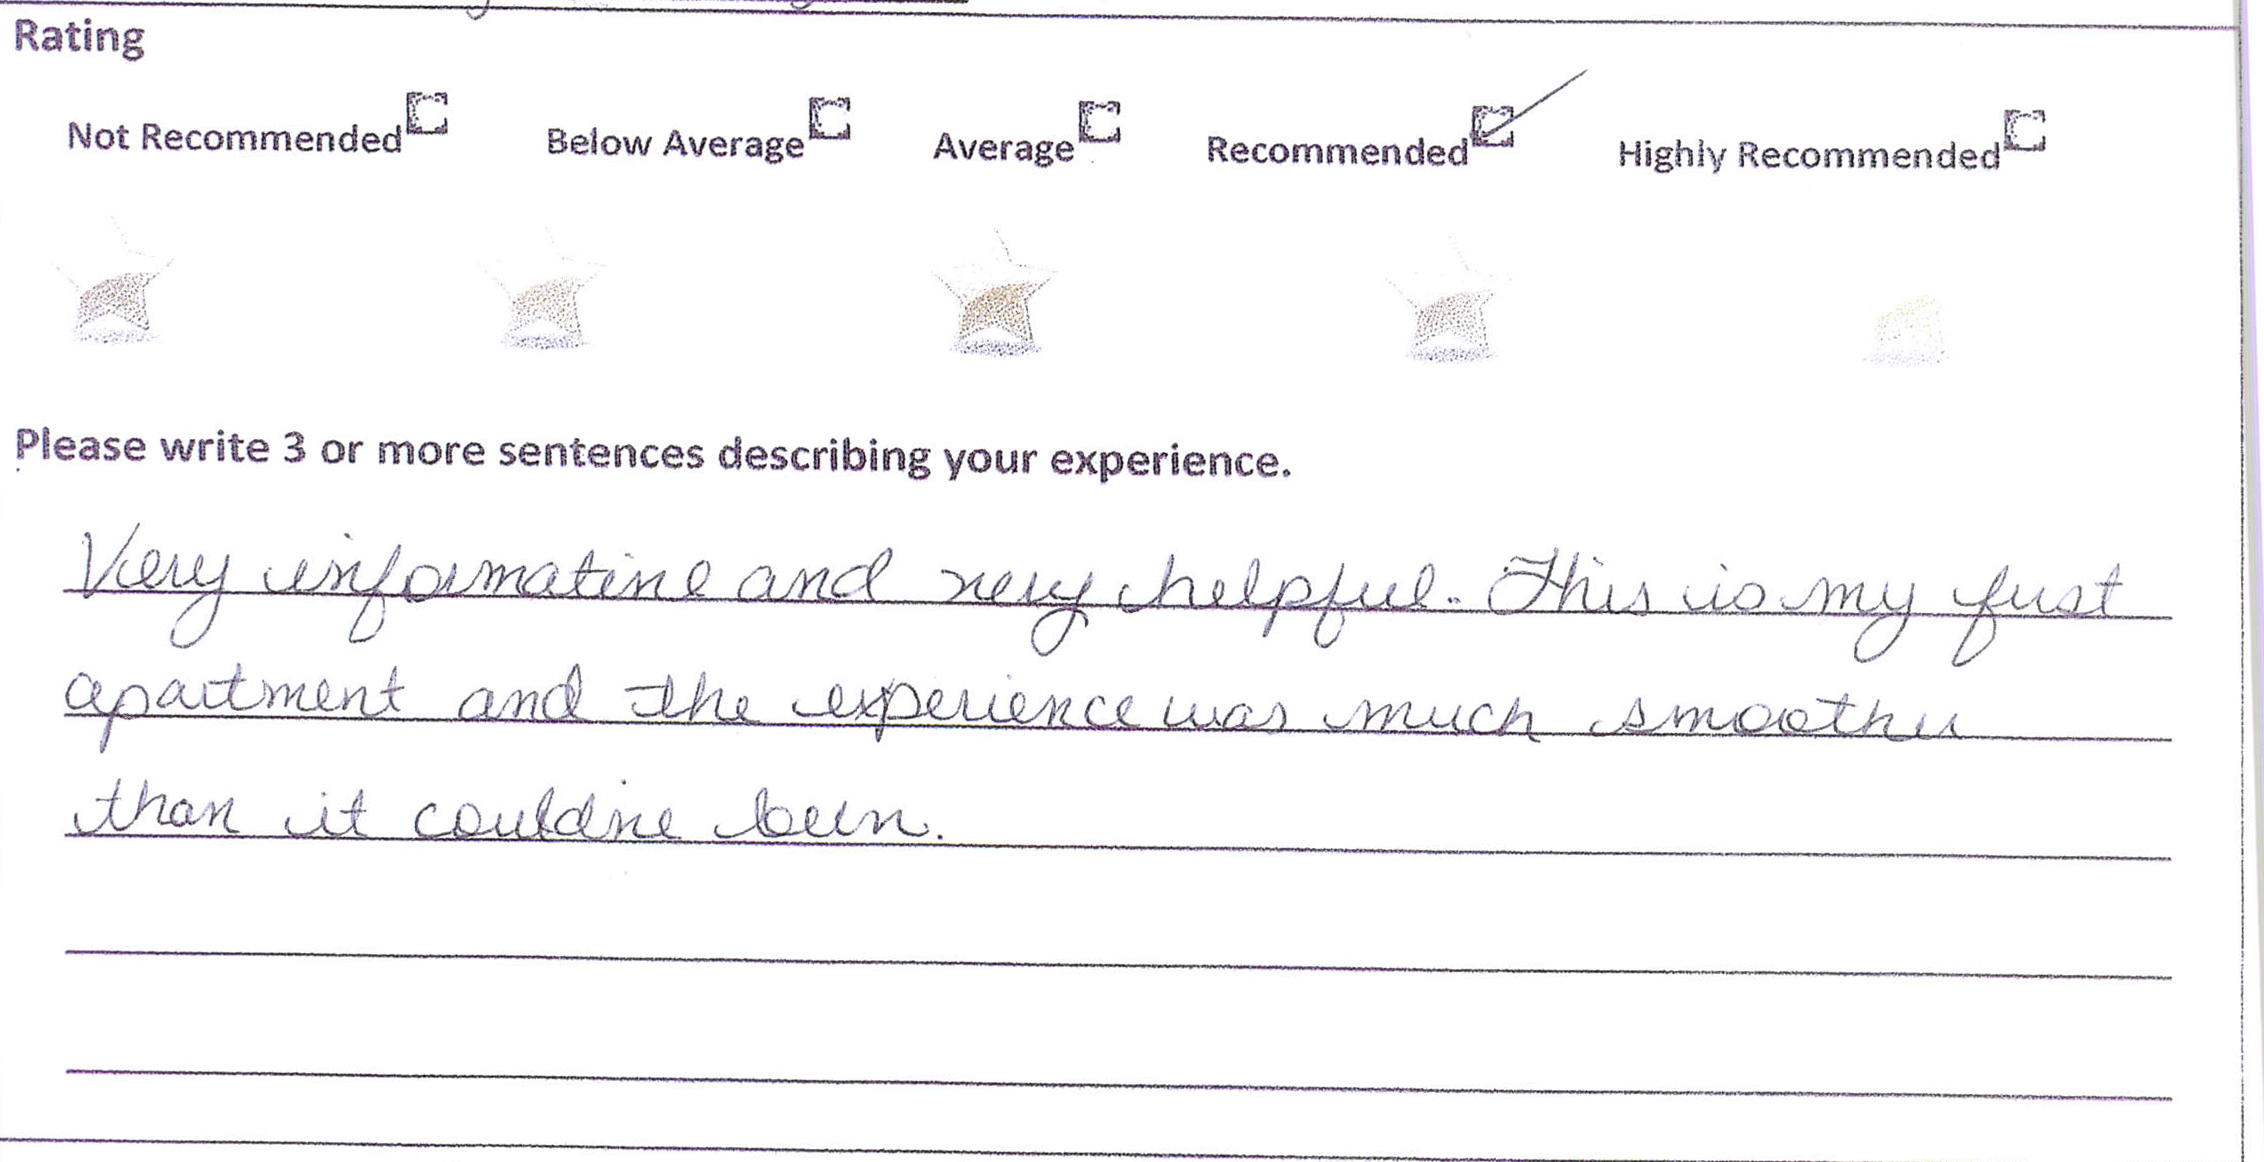 Rating
Not Recommended Below Average Average Recommended Highly Recommended
Please write 3 or more sentences describing your experience.
Very informative and very helpful. This is my first
apartment and the experience was much smoother
than it could've been.